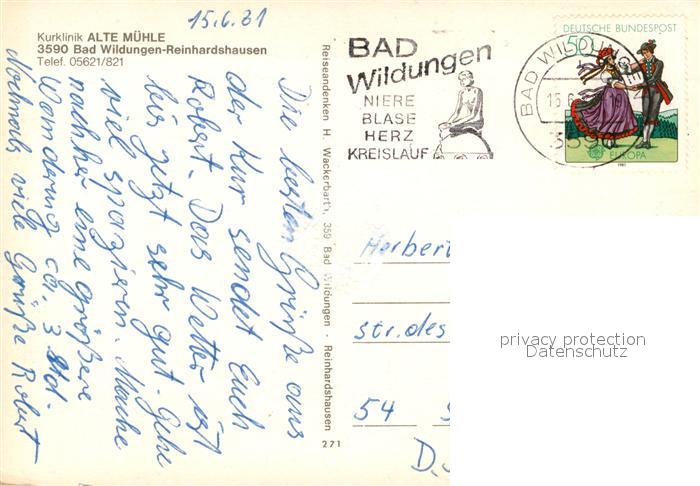 15.6.81
Kurklinik ALTE MÜHLE
3590 Bad Wildungen-Reinhardshausen
Telef. 05621/821
Die besten Grüße aus
der Kur sendet Euch
Robert. Das Wetter ist
bis jetzt sehr gut. Gehe
viel spazieren. Mache
nachher eine größere
Wanderung ca. 3 Std.
Nochmals viele Grüße Robert
Reiseandenken H. Wackerbarth, 359 Bad Wildungen - Reinhardshausen
271
BAD
Wildungen
NIERE
BLASE
HERZ
KREISLAUF
BAD WIL
15.6.
359
DEUTSCHE BUNDESPOST
50
EUROPA
1981
Herbert
str. des
54
D.
privacy protection
Datenschutz